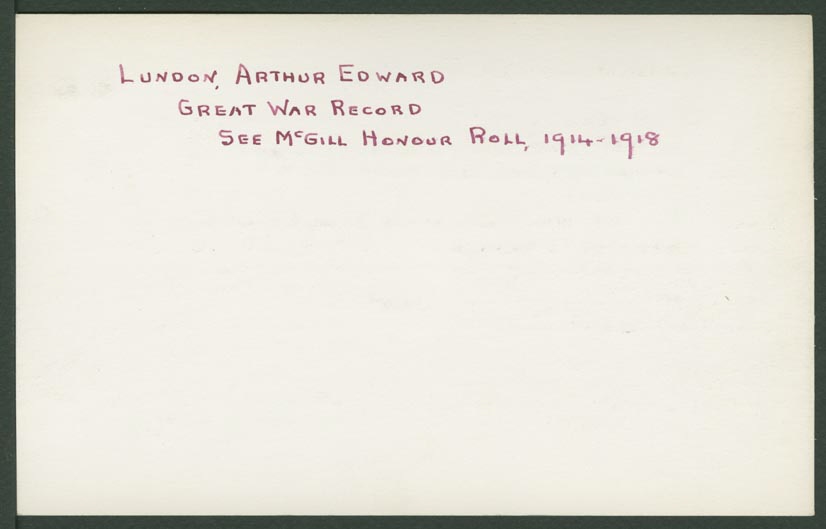 LUNDON, ARTHUR EDWARD
GREAT WAR RECORD
SEE McGILL HONOUR ROLL, 1914-1918